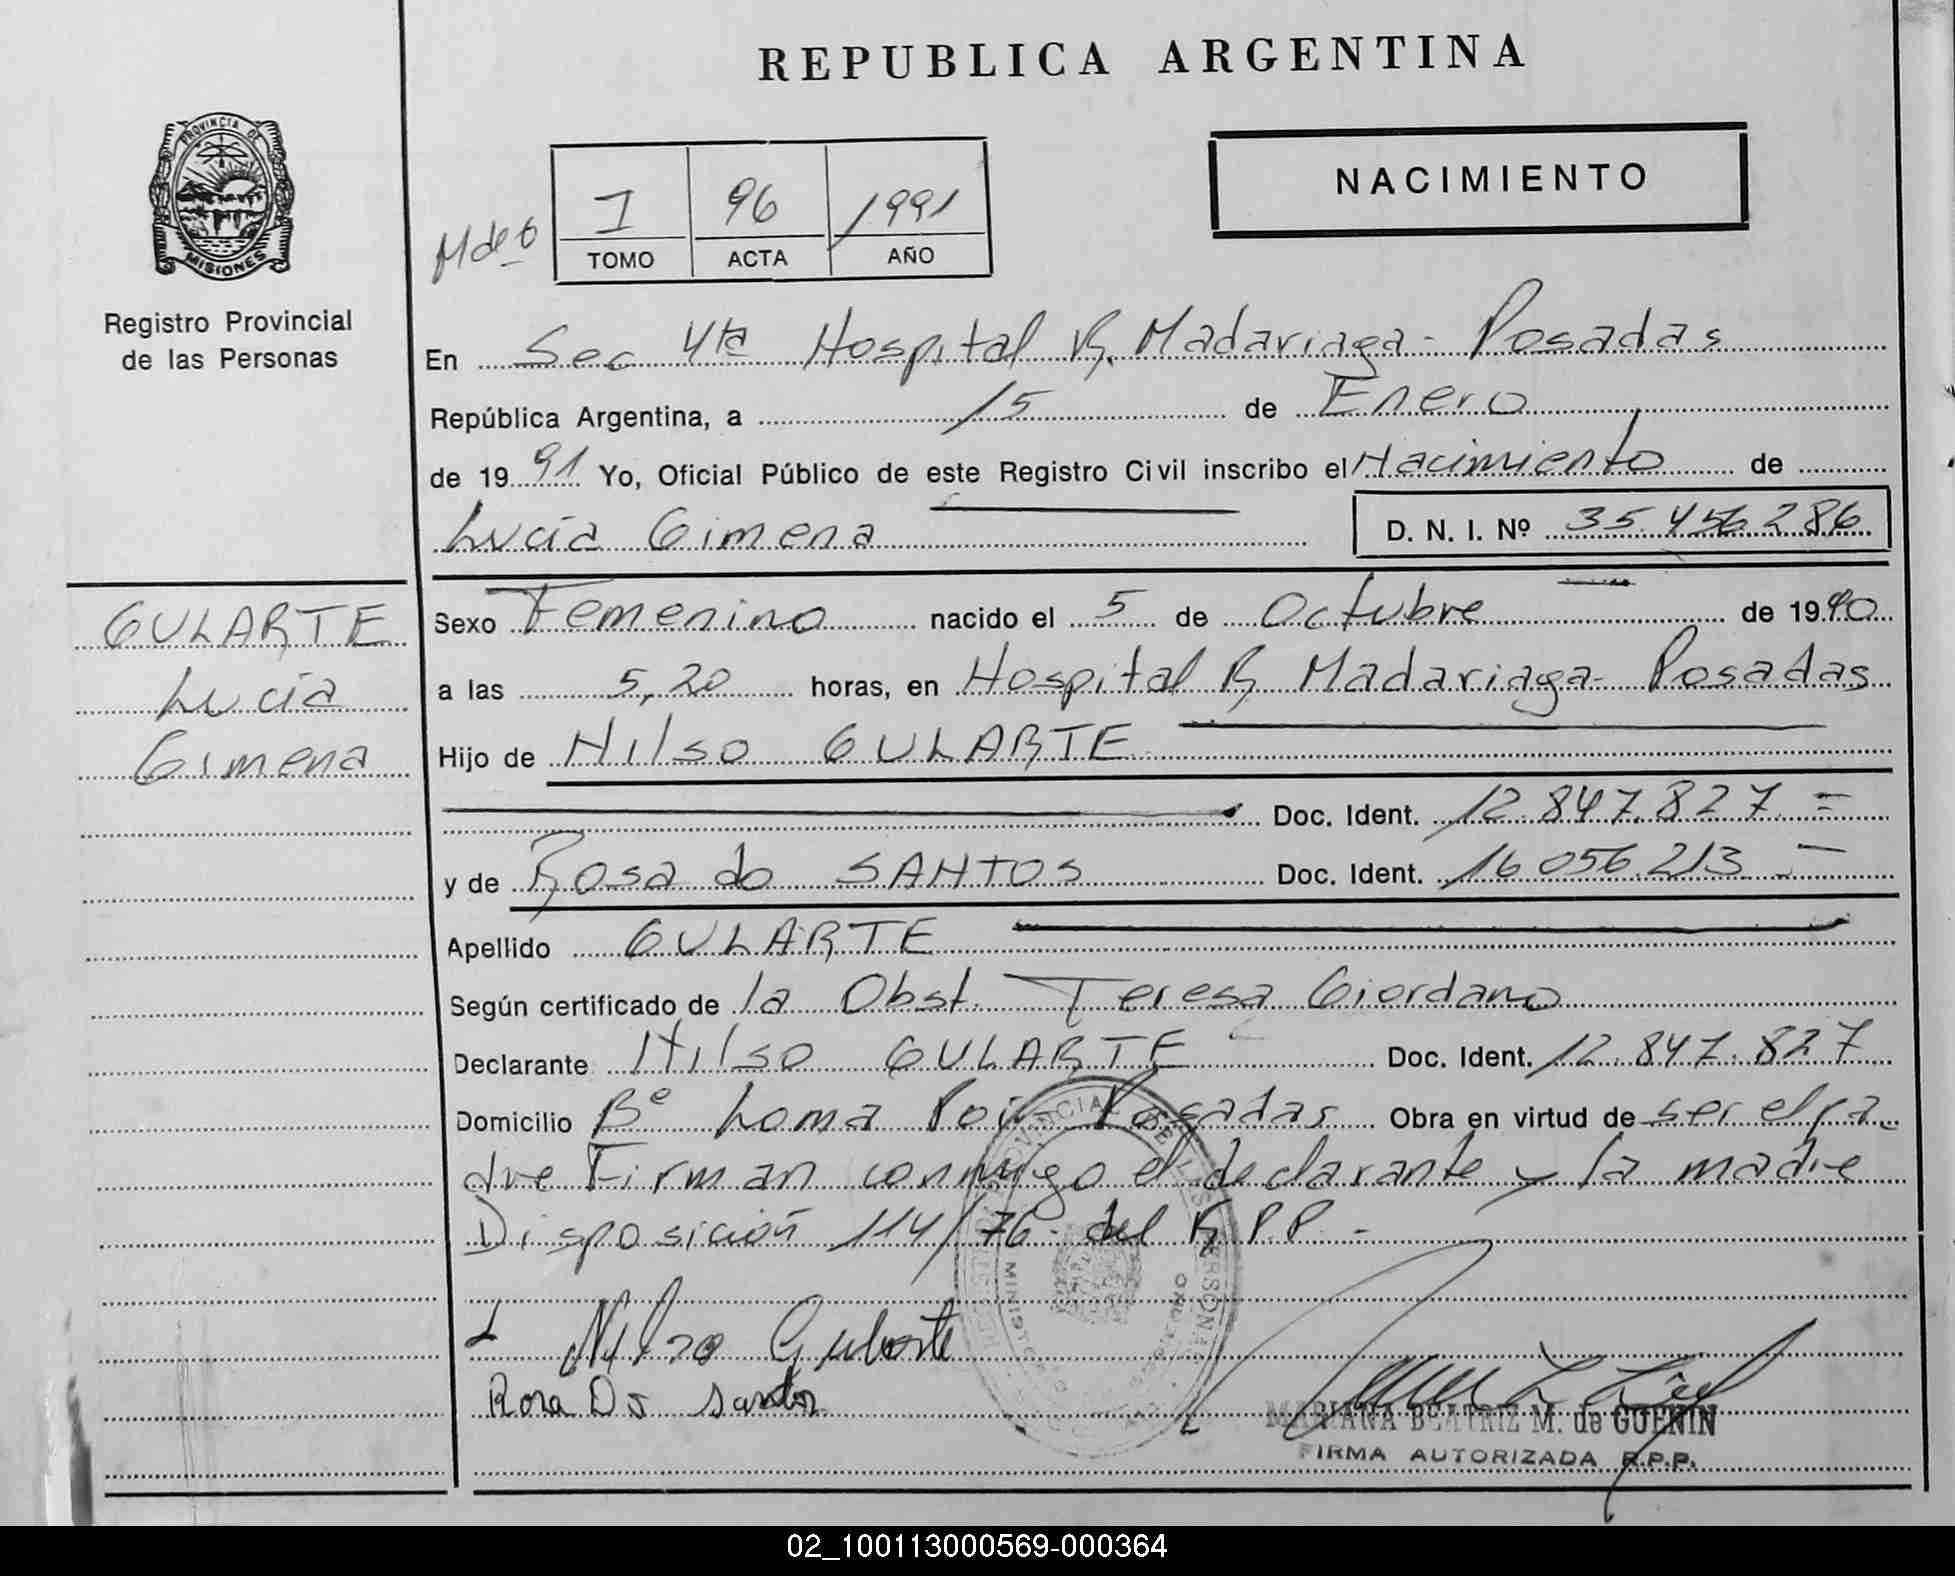 REPUBLICA ARGENTINA
PROVINCIA DE
MISIONES
Registro Provincial
de las Personas
NACIMIENTO
I 96 1991
TOMO ACTA AÑO
En Sec 4ta Hospital R. Madariaga - Posadas
República Argentina, a 15 de Enero
de 1991 Yo, Oficial Público de este Registro Civil inscribo el Nacimiento de
Lucía Gimena D. N. I. Nº 35.456.286
GULARTE
Lucía
Gimena
Sexo Femenino nacido el 5 de Octubre de 1990
a las 5,20 horas, en Hospital R. Madariaga - Posadas
Hijo de Nilso GULARTE
Doc. Ident. 12.847.827 =
y de Rosa do SANTOS Doc. Ident. 16.056.213 -
Apellido GULARTE
Según certificado de la Obst. Teresa Giordano
Declarante Nilso GULARTE Doc. Ident. 12.847.827
Domicilio Bº Loma Poi Posadas Obra en virtud de ser el pa
dre Firman conmigo el declarante y la madre
Disposición 114/76 - del R.P.P. -
Nilso Gularte
Rosa Do Santos
MARIANA BEATRIZ M. de GUENIN
FIRMA AUTORIZADA R.P.P.
02_100113000569-000364